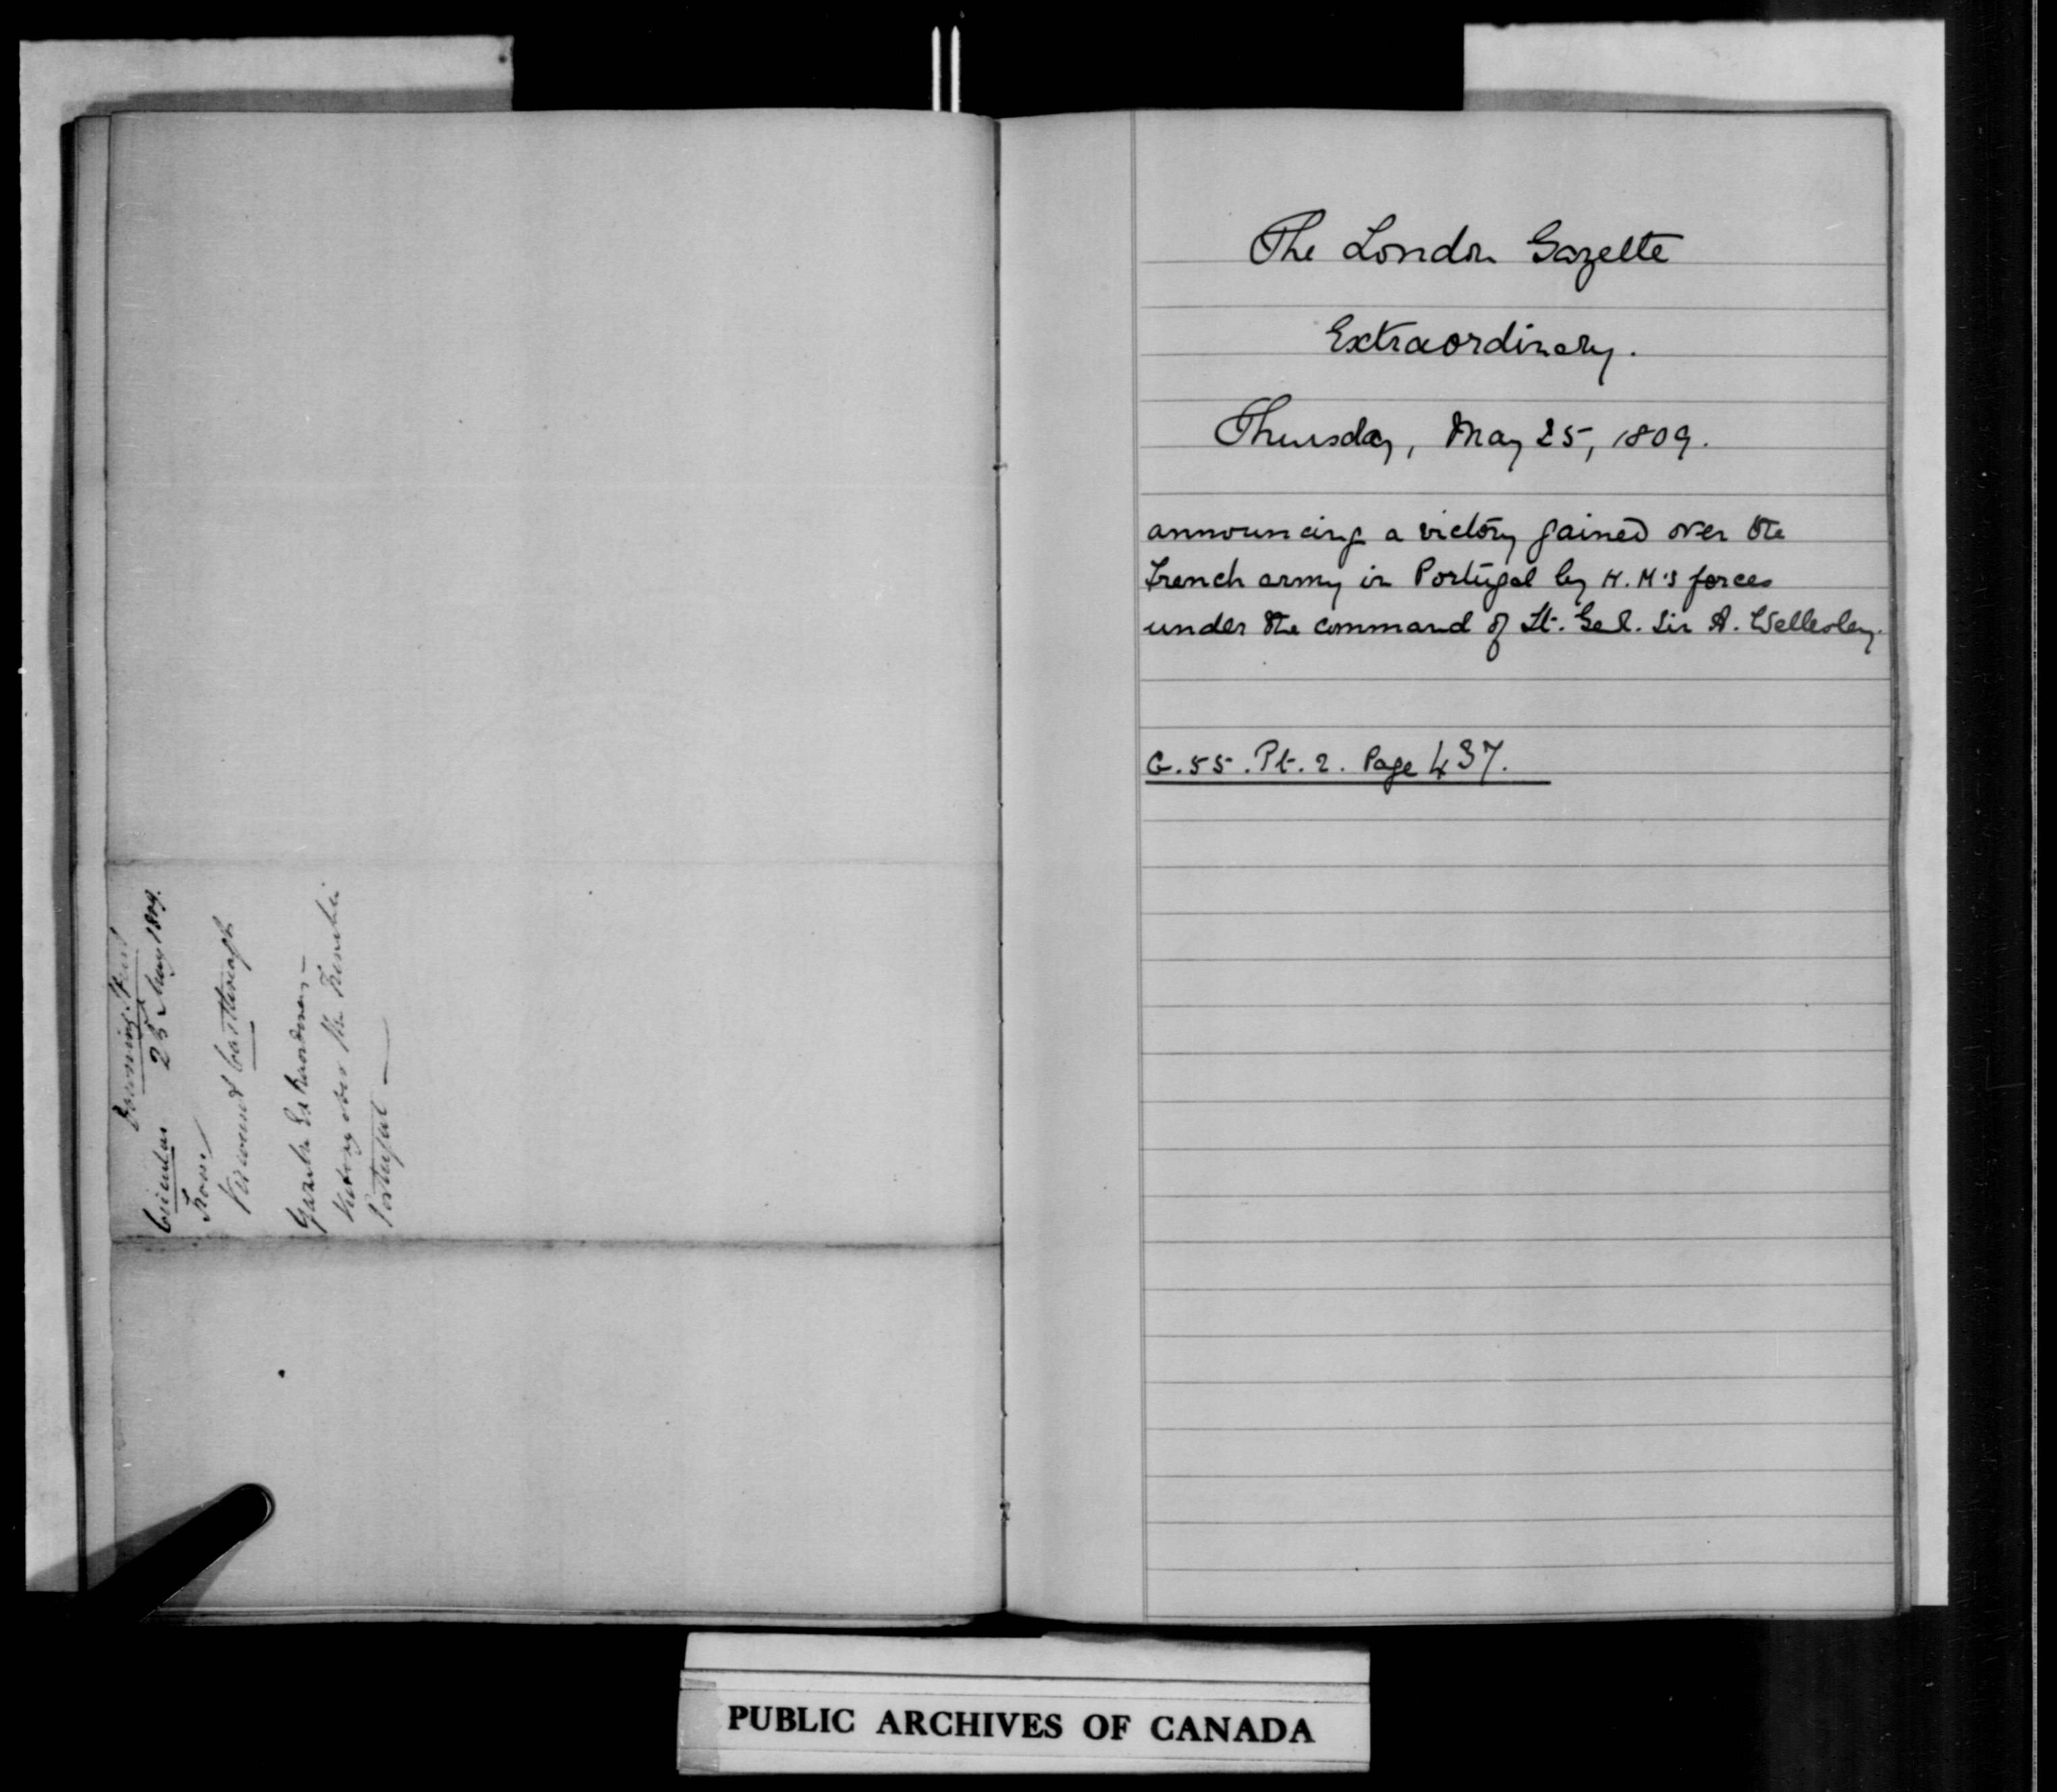 Downing Street
Circular 25 May 1809.
From
Viscount Castlereagh
Gazette Extraordinary —
Victory over the French in
Portugal —
The London Gazette
Extraordinary.
Thursday, May 25, 1809.
announcing a victory gained over the
French army in Portugal by H.M's forces
under the command of Lt. Gel. Sir A. Wellesley.
G. 55. Pt. 2. Page 437.
PUBLIC ARCHIVES OF CANADA